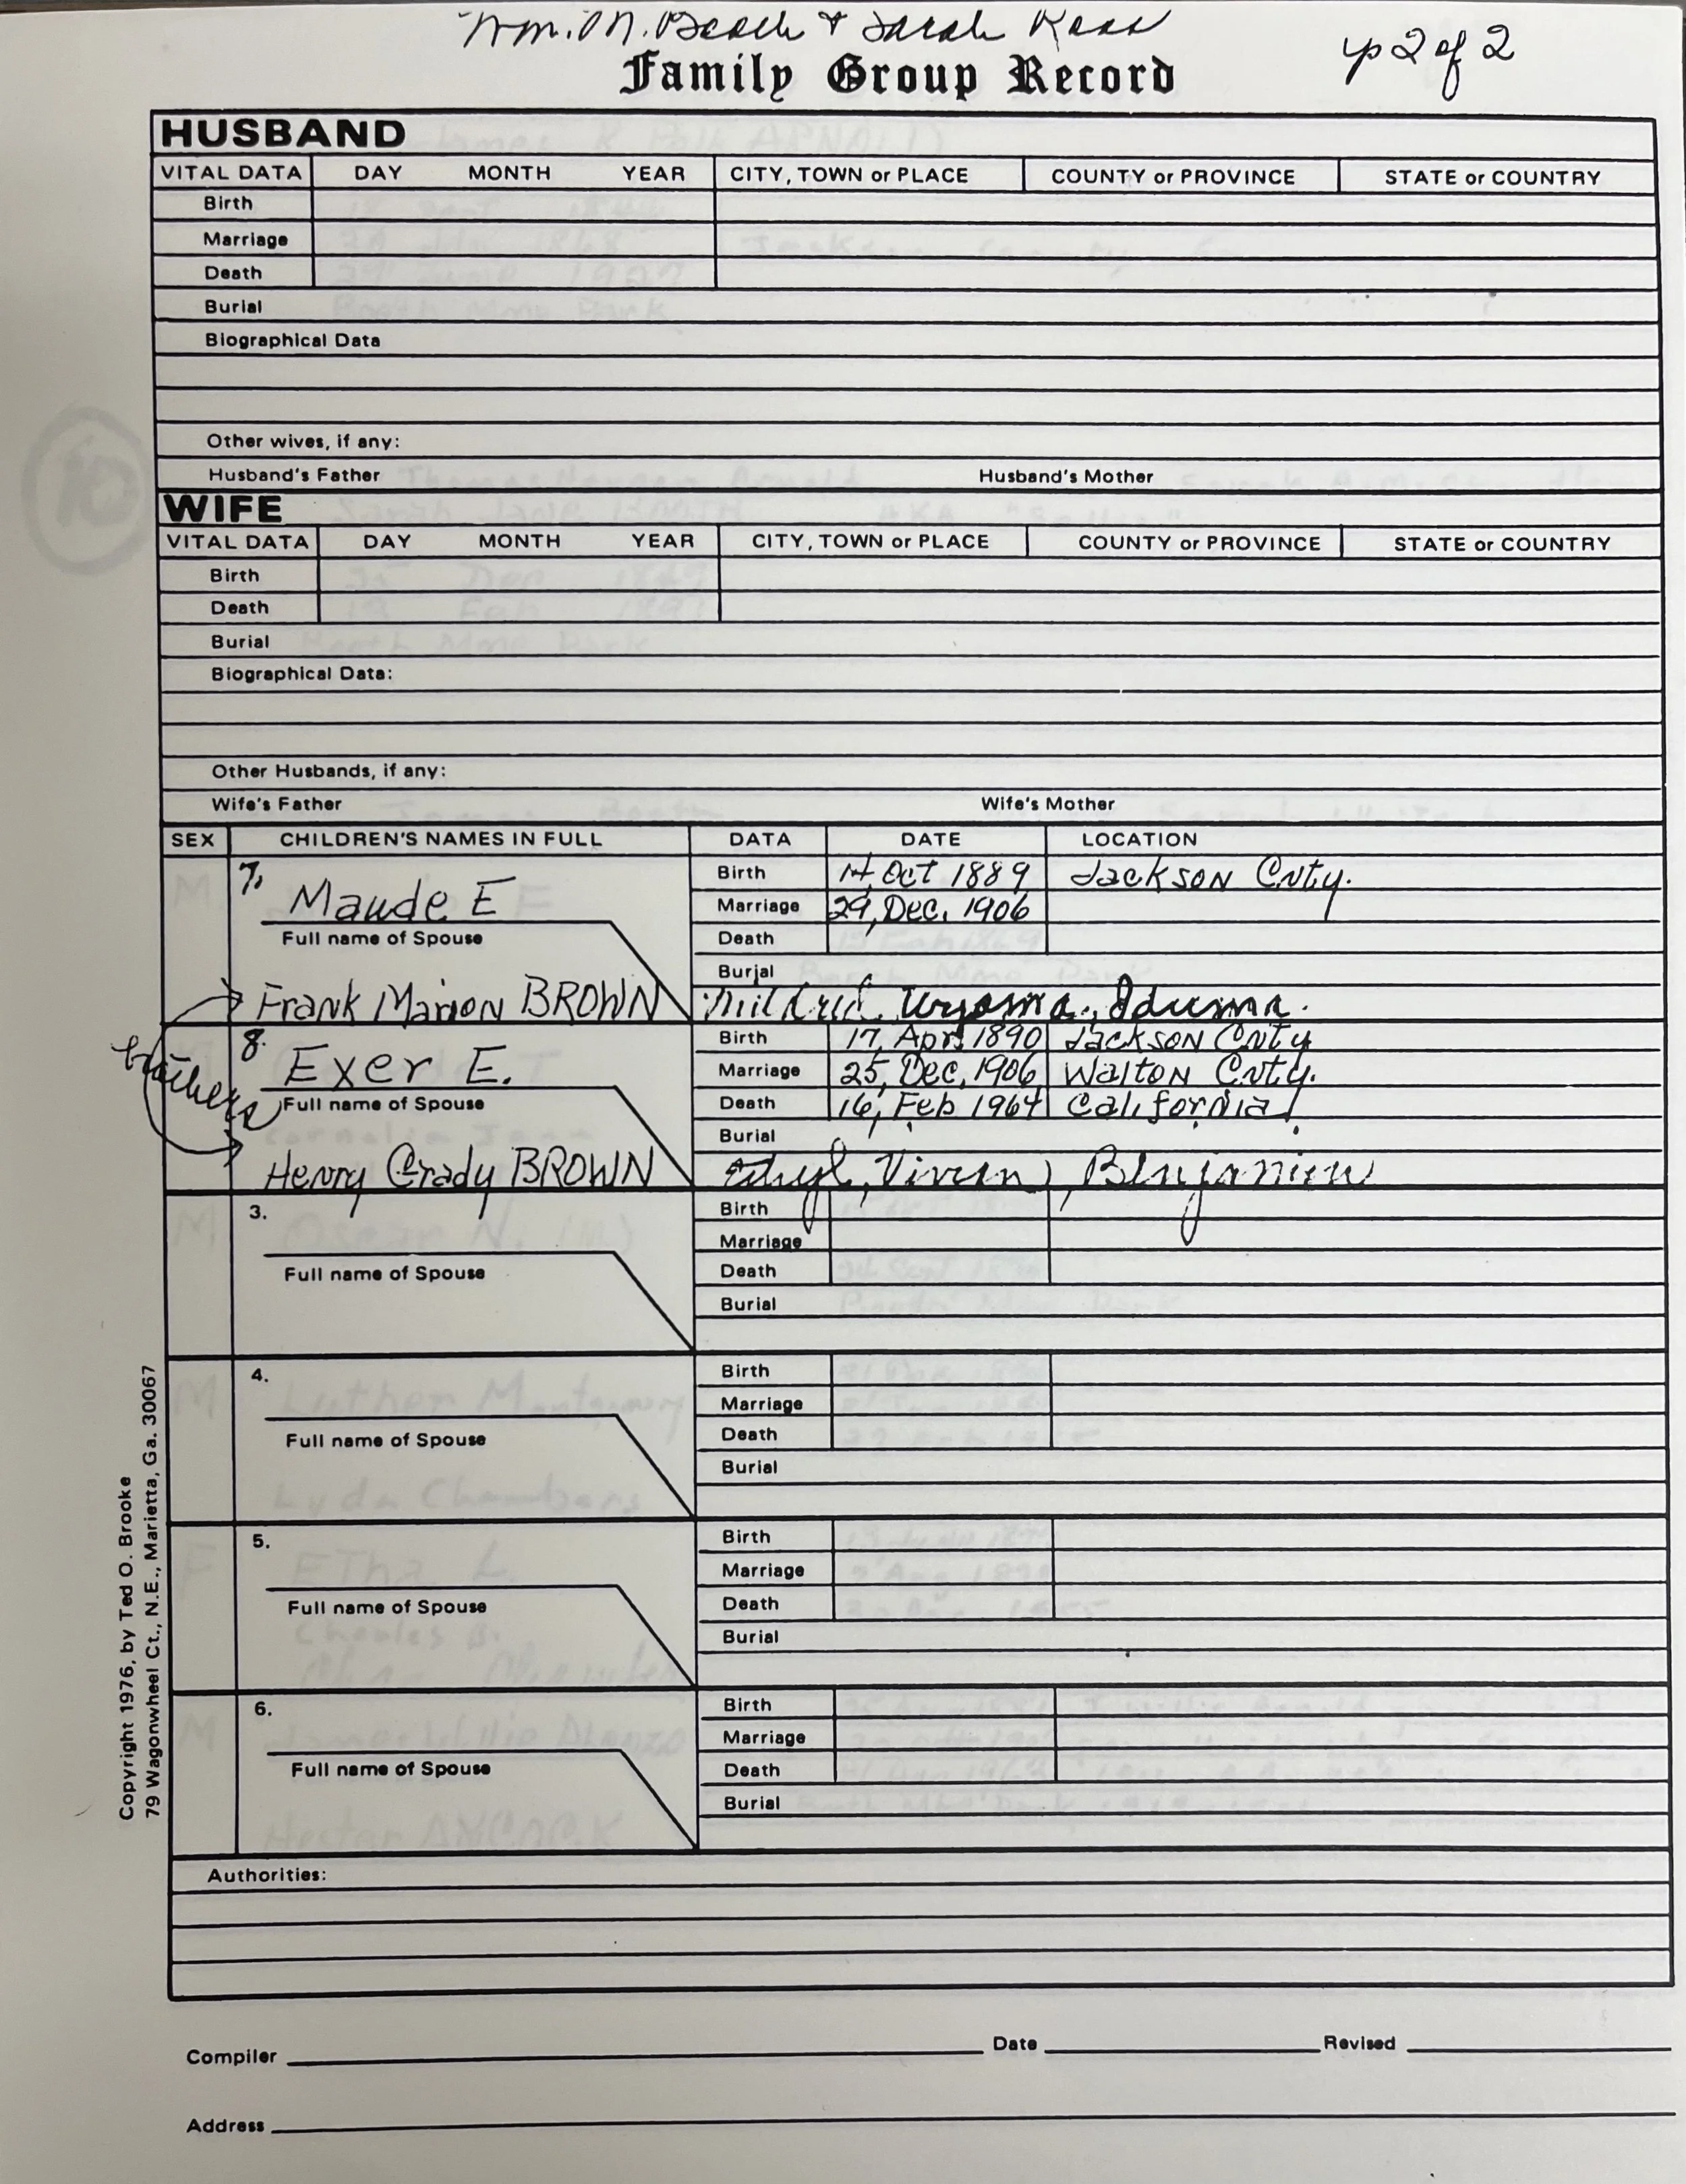 Wm. M. & Sarah
p 2 of 2
Family Group Record
HUSBAND
VITAL DATA DAY MONTH YEAR CITY, TOWN or PLACE COUNTY or PROVINCE STATE or COUNTRY
Birth
Marriage
Death
Burial
Biographical Data
Other wives, if any:
Husband's Father Husband's Mother
WIFE
VITAL DATA DAY MONTH YEAR CITY, TOWN or PLACE COUNTY or PROVINCE STATE or COUNTRY
Birth
Death
Burial
Biographical Data:
Other Husbands, if any:
Wife's Father Wife's Mother
SEX CHILDREN'S NAMES IN FULL DATA DATE LOCATION
7. Maude E
Birth 14, Oct 1889 Jackson Cnty.
Marriage 29, Dec. 1906
Full name of Spouse Death
Burial
Frank Marion BROWN Mildred, Iduma.
brothers
8. Exer E.
Birth 17, Apr. 1890 Jackson Cnty
Marriage 25, Dec, 1906 Walton Cnty.
Full name of Spouse Death 16, Feb 1964 California
Burial
Henry Grady BROWN Vivian, Benjamin
3. Birth
Marriage
Full name of Spouse Death
Burial
4. Birth
Marriage
Full name of Spouse Death
Burial
5. Birth
Marriage
Full name of Spouse Death
Burial
6. Birth
Marriage
Full name of Spouse Death
Burial
Authorities:
Compiler Date Revised
Address
Copyright 1976, by Ted O. Brooke
79 Wagonwheel Ct., N.E., Marietta, Ga. 30067